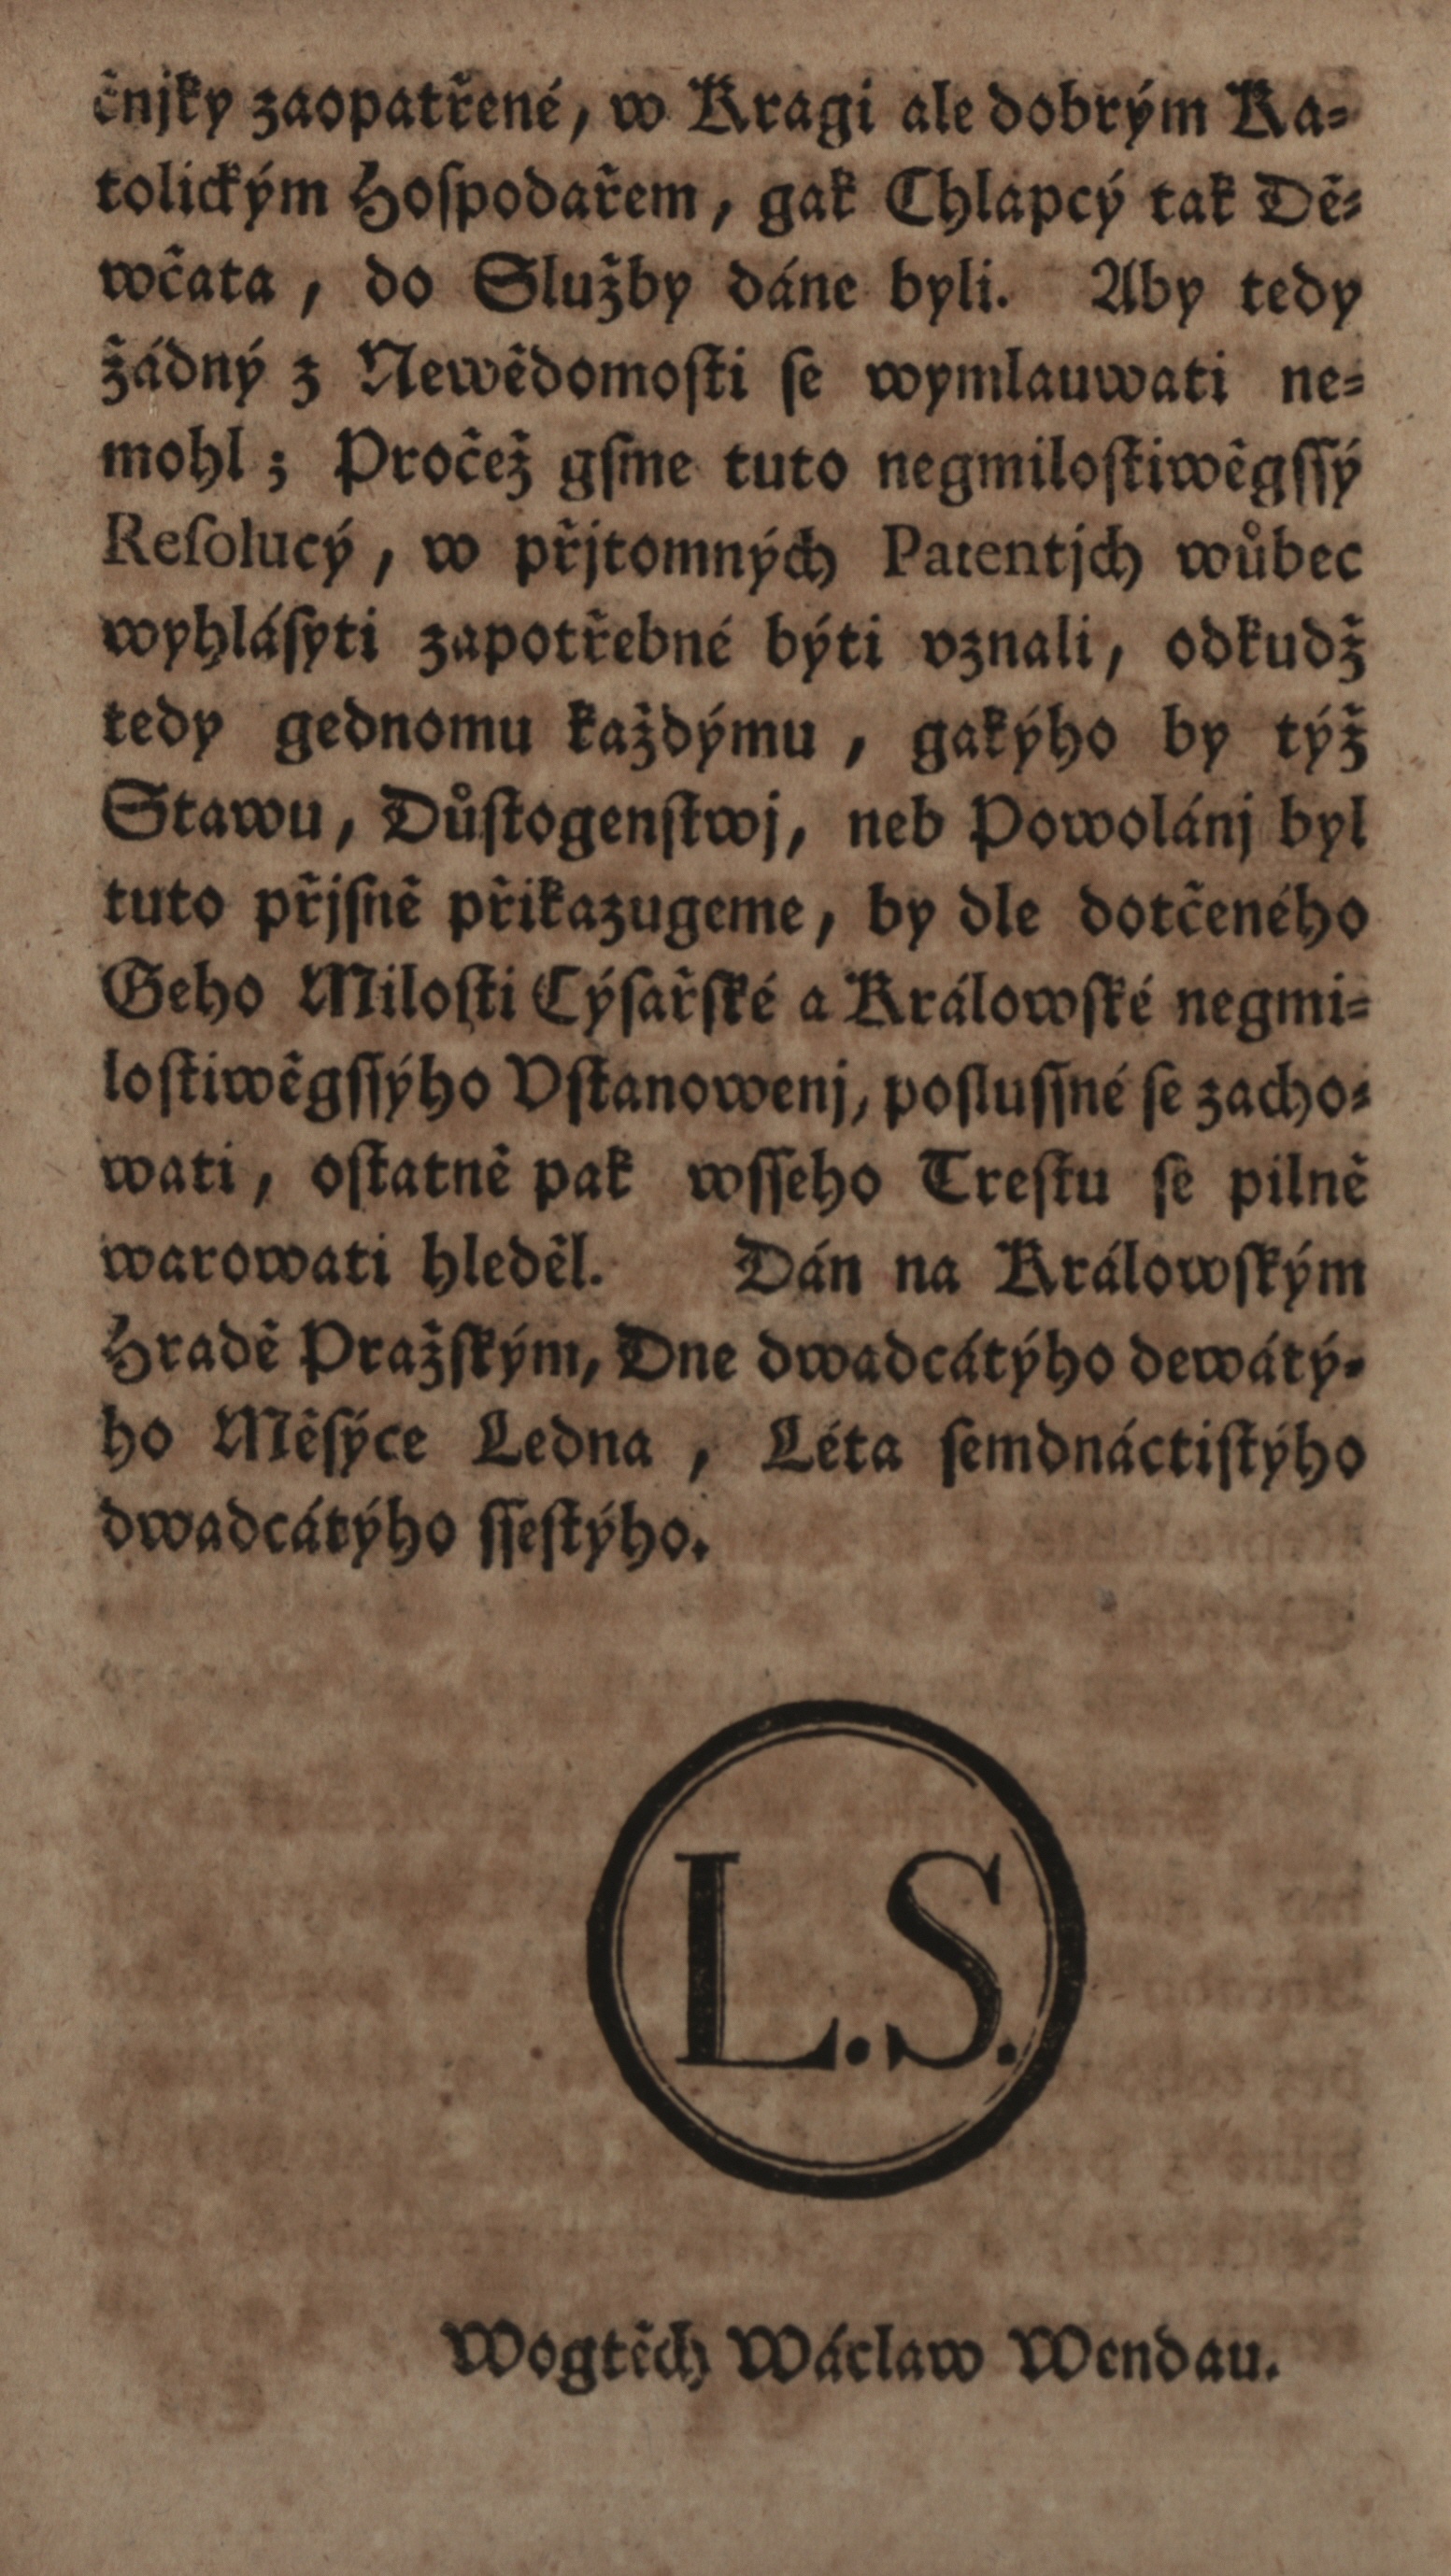 čnjky zaopatřené, w Kragi ale dobrým Ka-
tolickým Hoſpodařem, gak Chlapcý tak Dě-
wčata, do Služby dáne byli. Aby tedy
žádný z Newědomoſti ſe wymlauwati ne-
mohl; Pročež gſme tuto negmiloſtiwěgſſý
Reſolucý, w přjtomných Patentjch wůbec
wyhláſyti zapotřebné býti vznali, odkudž
tedy gednomu každýmu, gakýho by týž
Stawu, Důſtogenſtwj, neb Powolánj byl
tuto přjſně přikazugeme, by dle dotčeného
Geho Miloſti Cýſařſké a Králowſké negmi-
loſtiwěgſſýho Vſtanowenj, poſluſſné ſe zacho-
wati, oſtatně pak wſſeho Treſtu ſe pilně
warowati hleděl. Dán na Králowſkým
Hradě Pražſkým, Dne dwadcátýho dewátý-
ho Měſýce Ledna, Léta ſemdnáctiſtýho
dwadcátýho ſſeſtýho.
L.S.
Wogtěch Wáclaw Wendau.